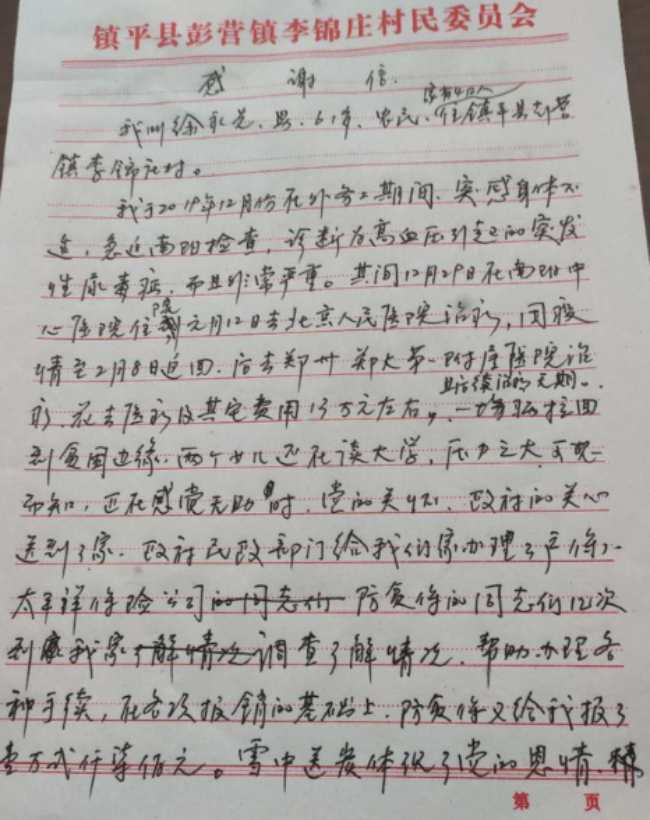 镇平县彭营镇李锦庄村民委员会
感谢信.
家有4口人
我叫徐永芝、男、61岁、农民、住镇平县彭营
镇李锦庄村。
我于2019年12月份在外务工期间、突感身体不
适,急返南阳检查,诊断为高血压引起的突发
性尿毒症,而且非常严重。其间12月29日在南阳中
心医院住院元月12日去北京人民医院治疗,因疫
情至2月8日返回.后去郑州郑大第一附属医院治
且后续治疗无期.
疗.花去医疗及其它费用13万元左右,一场病拉回
到贫困边缘.两个女儿还在读大学,压力之大可想
而知,正在感觉无助时.党的关怀、政府的关心
送到了家.政府民政部门给我们家办理了低保.
太平洋保险公司的同志们防贫保的同志们几次
到我家了解情况调查了解情况.帮助办理各
种手续,在各次报销的基础上.防贫保又给我报了
壹万贰仟柒佰元。雪中送炭体现了党的恩情.
第 页